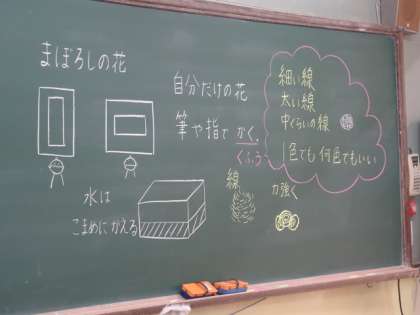 まぼろしの花
自分だけの花
筆や指で かく。
くふう
細い線
太い線
中くらいの線
1色でも 何色でもいい
水は
こまめに かえる
線
力強く